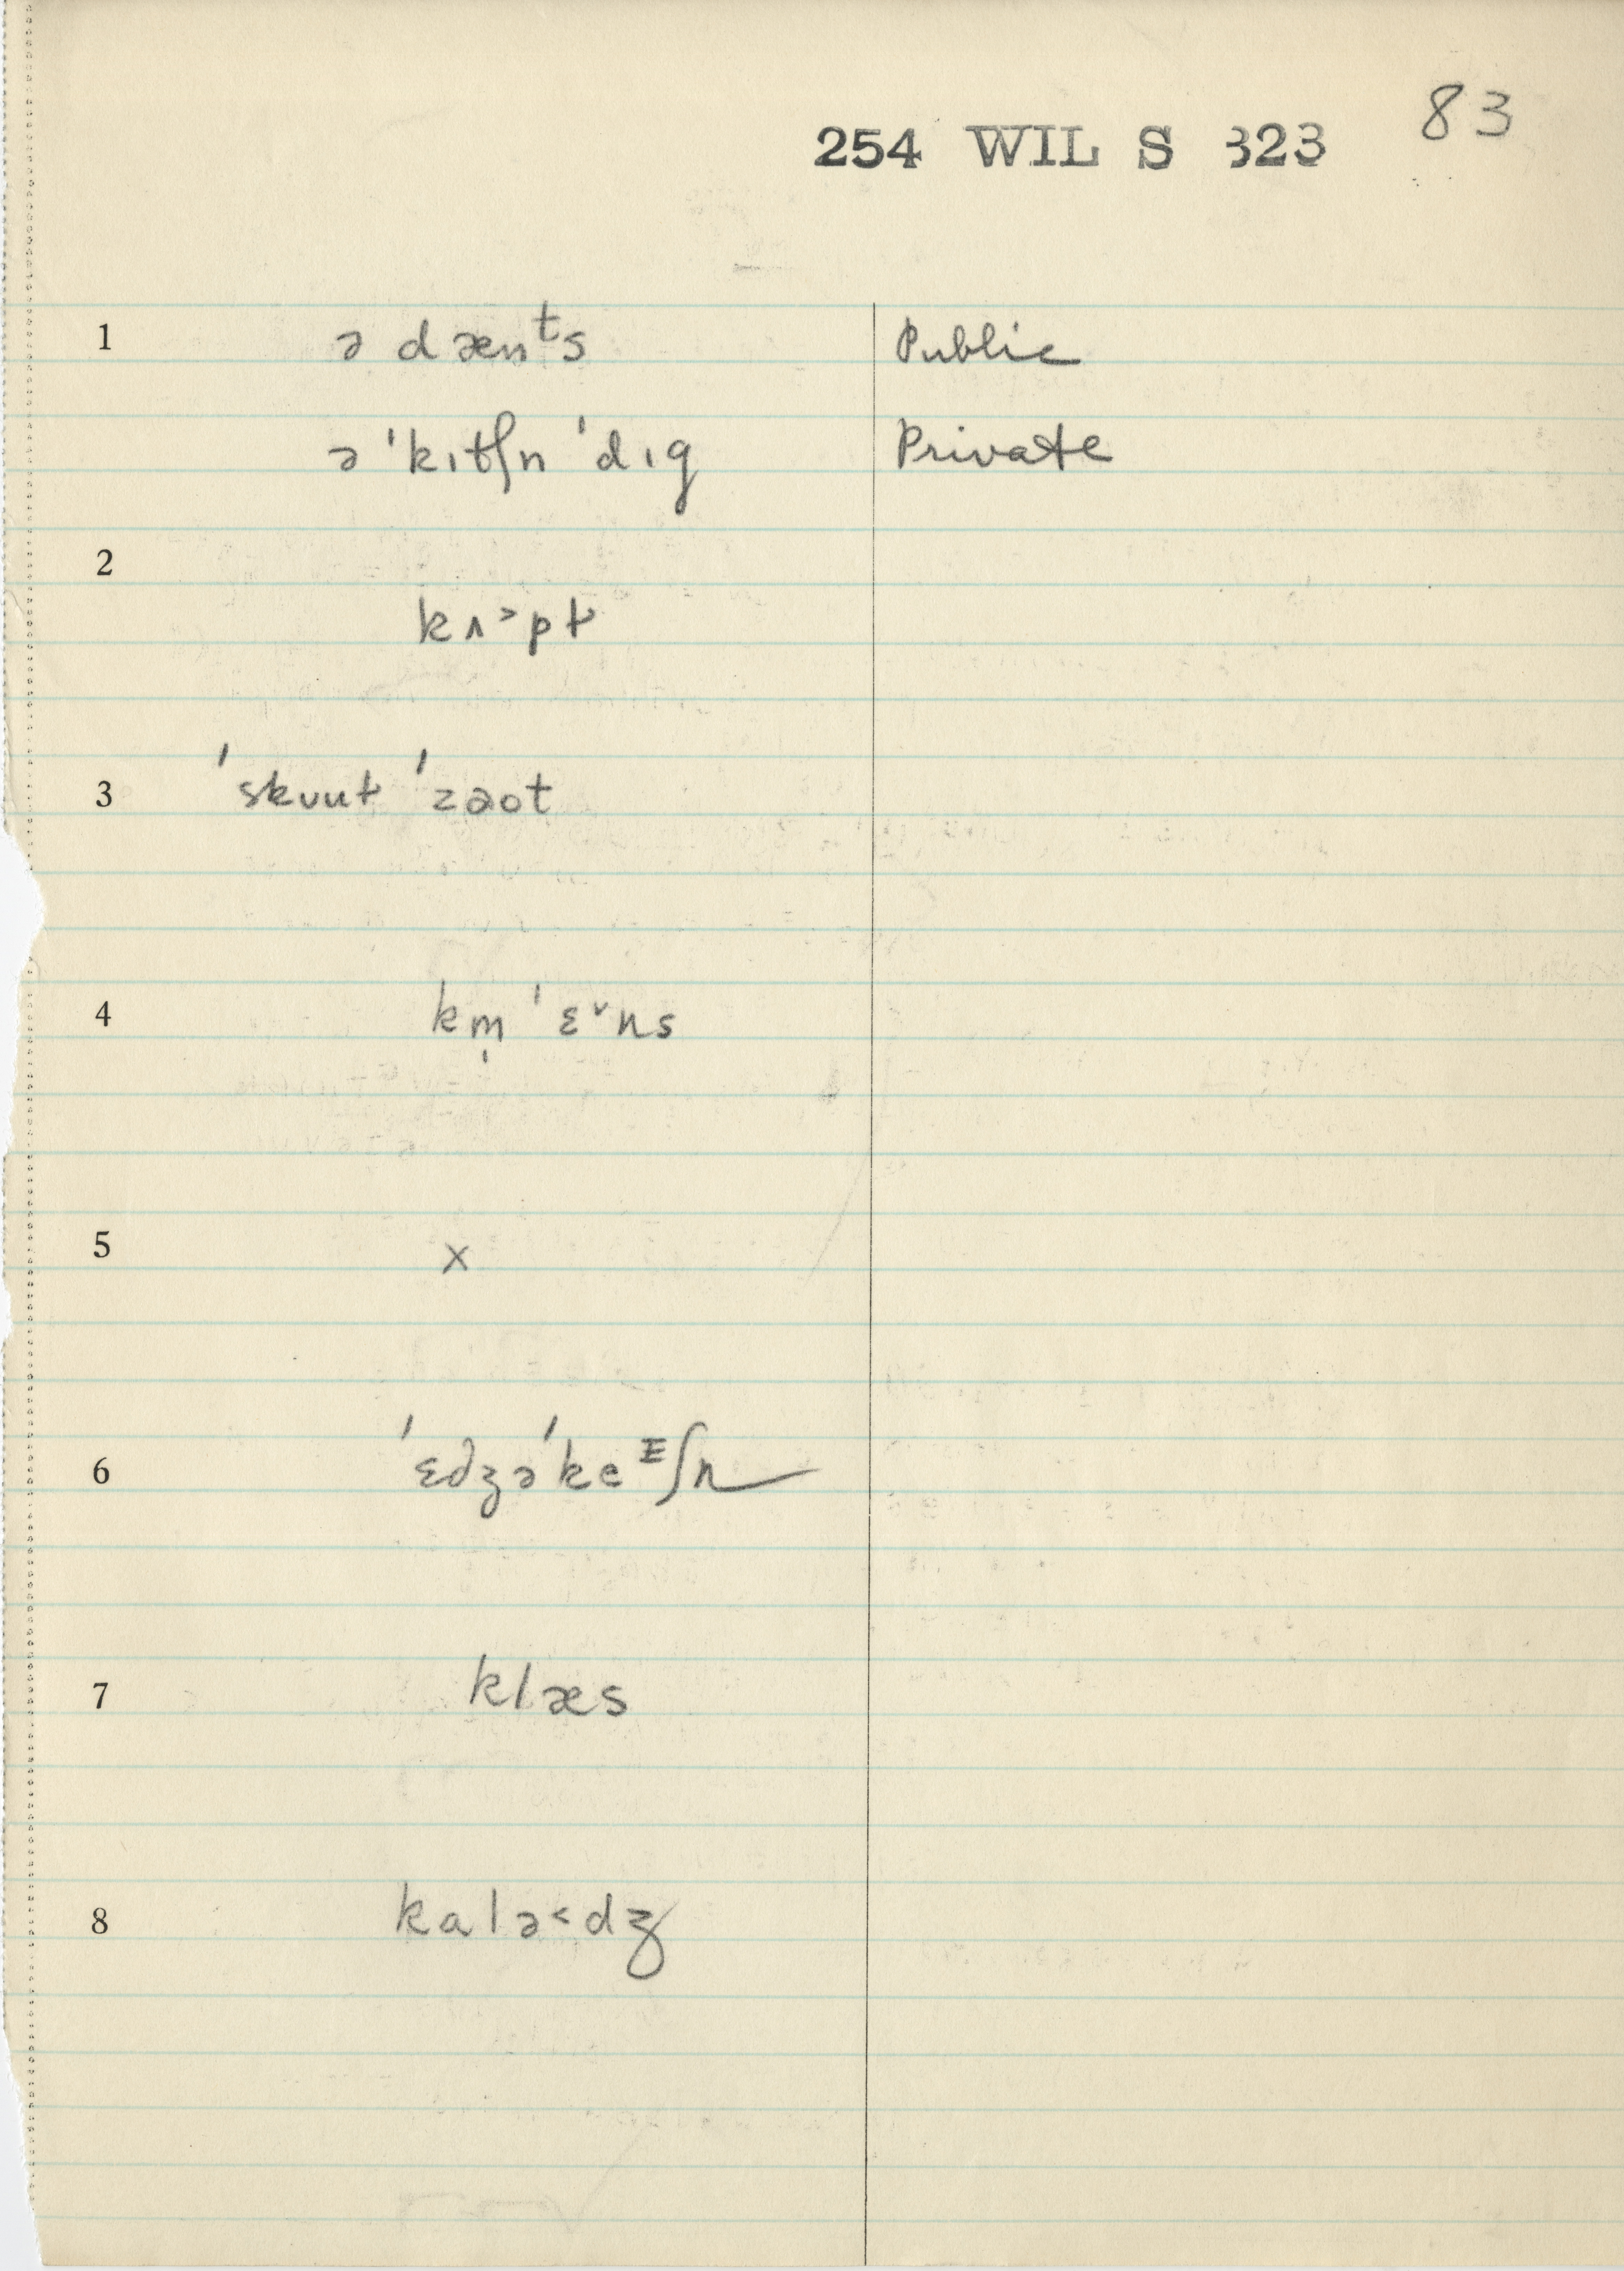 254 WIL S 323 83
1 ə dænᵗs Public
ə ˈkɪtʃn ˈdɪg Private
2
kʌ˃pt
3 ˈskuut ˈzaot
4 km̩ ˈɛ˅ns
5 x
6 ˈɛdʒəˈkeᴱʃn
7 klæs
8 kalə˂dʒ